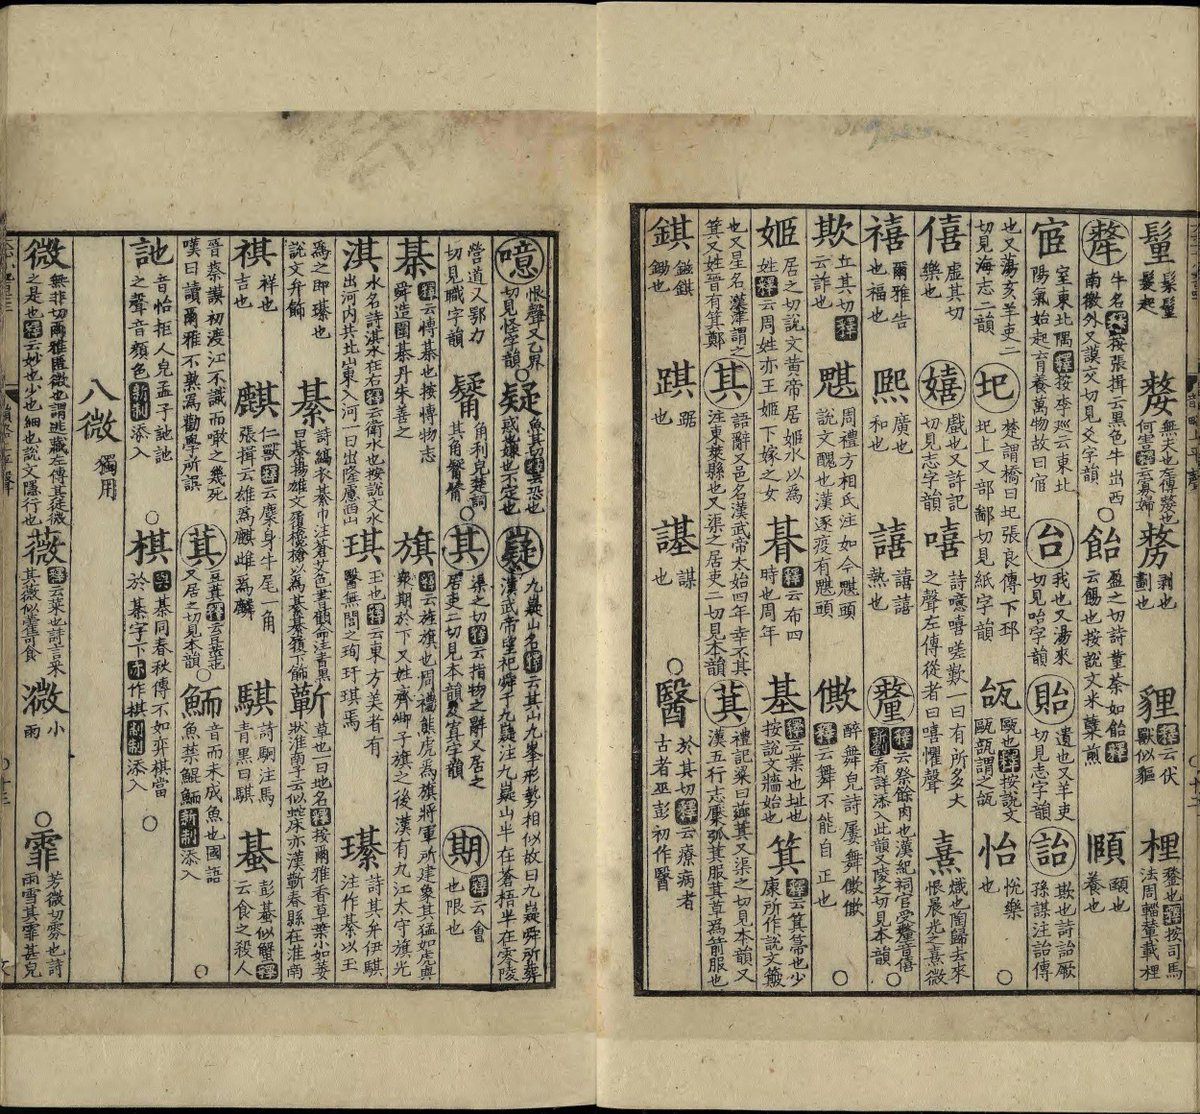 氂 髮起 嫠 無夫也左傳嫠也何害釋云寡婦 剺 剥也劃也 貍 釋云伏獸似貙 梩
犛 牛名釋按張揖云黑色牛出西南徼外又謨交切見爻字韻 ○ 飴 盈之切詩堇荼如飴釋云餳也按說文米糵煎 頤 頤也養也
宧 室東北隅釋按李巡云東北陽氣始起育養萬物故曰宧 台 我也又湯來切見咍字韻 貽 遺也又羊吏切見志字韻 詒 欺也詩詒厥孫謀注詒傳
也又蕩亥羊吏二切見海志二韻 圯 楚謂橋曰圯張良傳下邳圯上又部鄙切見紙字韻 瓵 甌也釋按說文甌瓿謂之瓵 怡 悅樂也 ○
僖 虛其切樂也 嬉 戲也又許記切見志字韻 嘻 詩噫嘻嗟歎一曰有所多大之聲左傳從者曰嘻懼聲 熹 熾也陶歸去來恨晨光之熹微
禧 爾雅告也福也 熙 廣也和也 譆 譆譆熱也 釐 釋云祭餘肉也漢紀祠官受釐音僖新制看詳添入此韻又陵之切見本韻 ○
欺 丘其切釋云詐也 魌 周禮方相氏注如今魌頭說文醜也漢逐疫有魌頭 僛 醉舞皃詩屢舞僛僛釋云舞不能自正也 ○
姬 居之切說文黃帝居姬水以為姓釋云周姓亦王姬下嫁之女 朞 釋云布四時也周年 基 釋云業也址也按說文牆始也 箕 釋云箕箒也少康所作說文簸
也又星名漢津謂之箕又姓晉有箕鄭 其 語辭又邑名漢武帝太始四年幸不其注東萊縣也又渠之居吏二切見本韻 萁 禮記梁曰薌萁又渠之切見本韻又漢五行志檿弧萁服萁草爲箭服也
錤 鎡錤鋤也 踑 踞也 諆 謀也 ○ 醫 於其切釋云療病者古者巫彭初作醫
噫 恨聲又乙界切見怪字韻 ○ 疑 魚其切釋云恐也惑也嫌也不定也 嶷 九嶷山名釋云其山九峯形勢相似故曰九嶷舜所葬漢武帝望祀舜于九嶷注九嶷山半在蒼梧半在零陵
營道又鄂力切見職字韻 觺 角利皃楚詞其角觺觺 ○ 其 渠之切釋云指物之辭又居之居吏二切見本韻及寘字韻 期 釋云會也限也
棊 釋云博棊也按博物志舜造圍棊丹朱善之 旗 釋云旌旗也周禮熊虎爲旗將軍所建象其猛如虎與衆期於下又姓齊卿子旗之後漢有九江太守旗光
淇 水名詩淇水在右釋云衛水也按說文水出河內共北山東入河一曰出隆慮西山 琪 玉也釋云東方美者有醫無閭之珣玗琪焉 璂 詩其弁伊騏注作綦以玉
爲之即璂也說文弁飾 綦 詩縞衣綦巾注蒼艾色 蘄 草也一曰地名釋按爾雅香草葉小如萎狀淮南子云似蛇牀亦漢蘄春縣在淮南
祺 祥也吉也 麒 仁獸釋云麇身牛尾一角張揖云雄爲麒雌爲麟 騏 詩駉注馬青黑曰騏 蜝 彭蜝似蟹釋云食之殺人
晉蔡謨初渡江不識而噉之幾死嘆曰讀爾雅不熟爲勸學所誤 萁 豆萁釋云豆莖也又居之切見本韻 ○ 鮞 音而未成魚也國語魚禁鯤鮞新制添入 ○
訑 音怡拒人皃孟子訑訑之聲音顏色新制添入 ○ 棋 與棊同春秋傳不如弈棋當於棊字下亦作棋 添入 ○
八微 獨用
微 無非切爾雅匿微也謂逃藏左傳其徒微之是也釋云妙也少也細也說文隱行也 薇 釋云菜也詩言采其薇似藿可食 溦 小雨 ○ 霏 芳微切雰也詩雨雪其霏甚皃